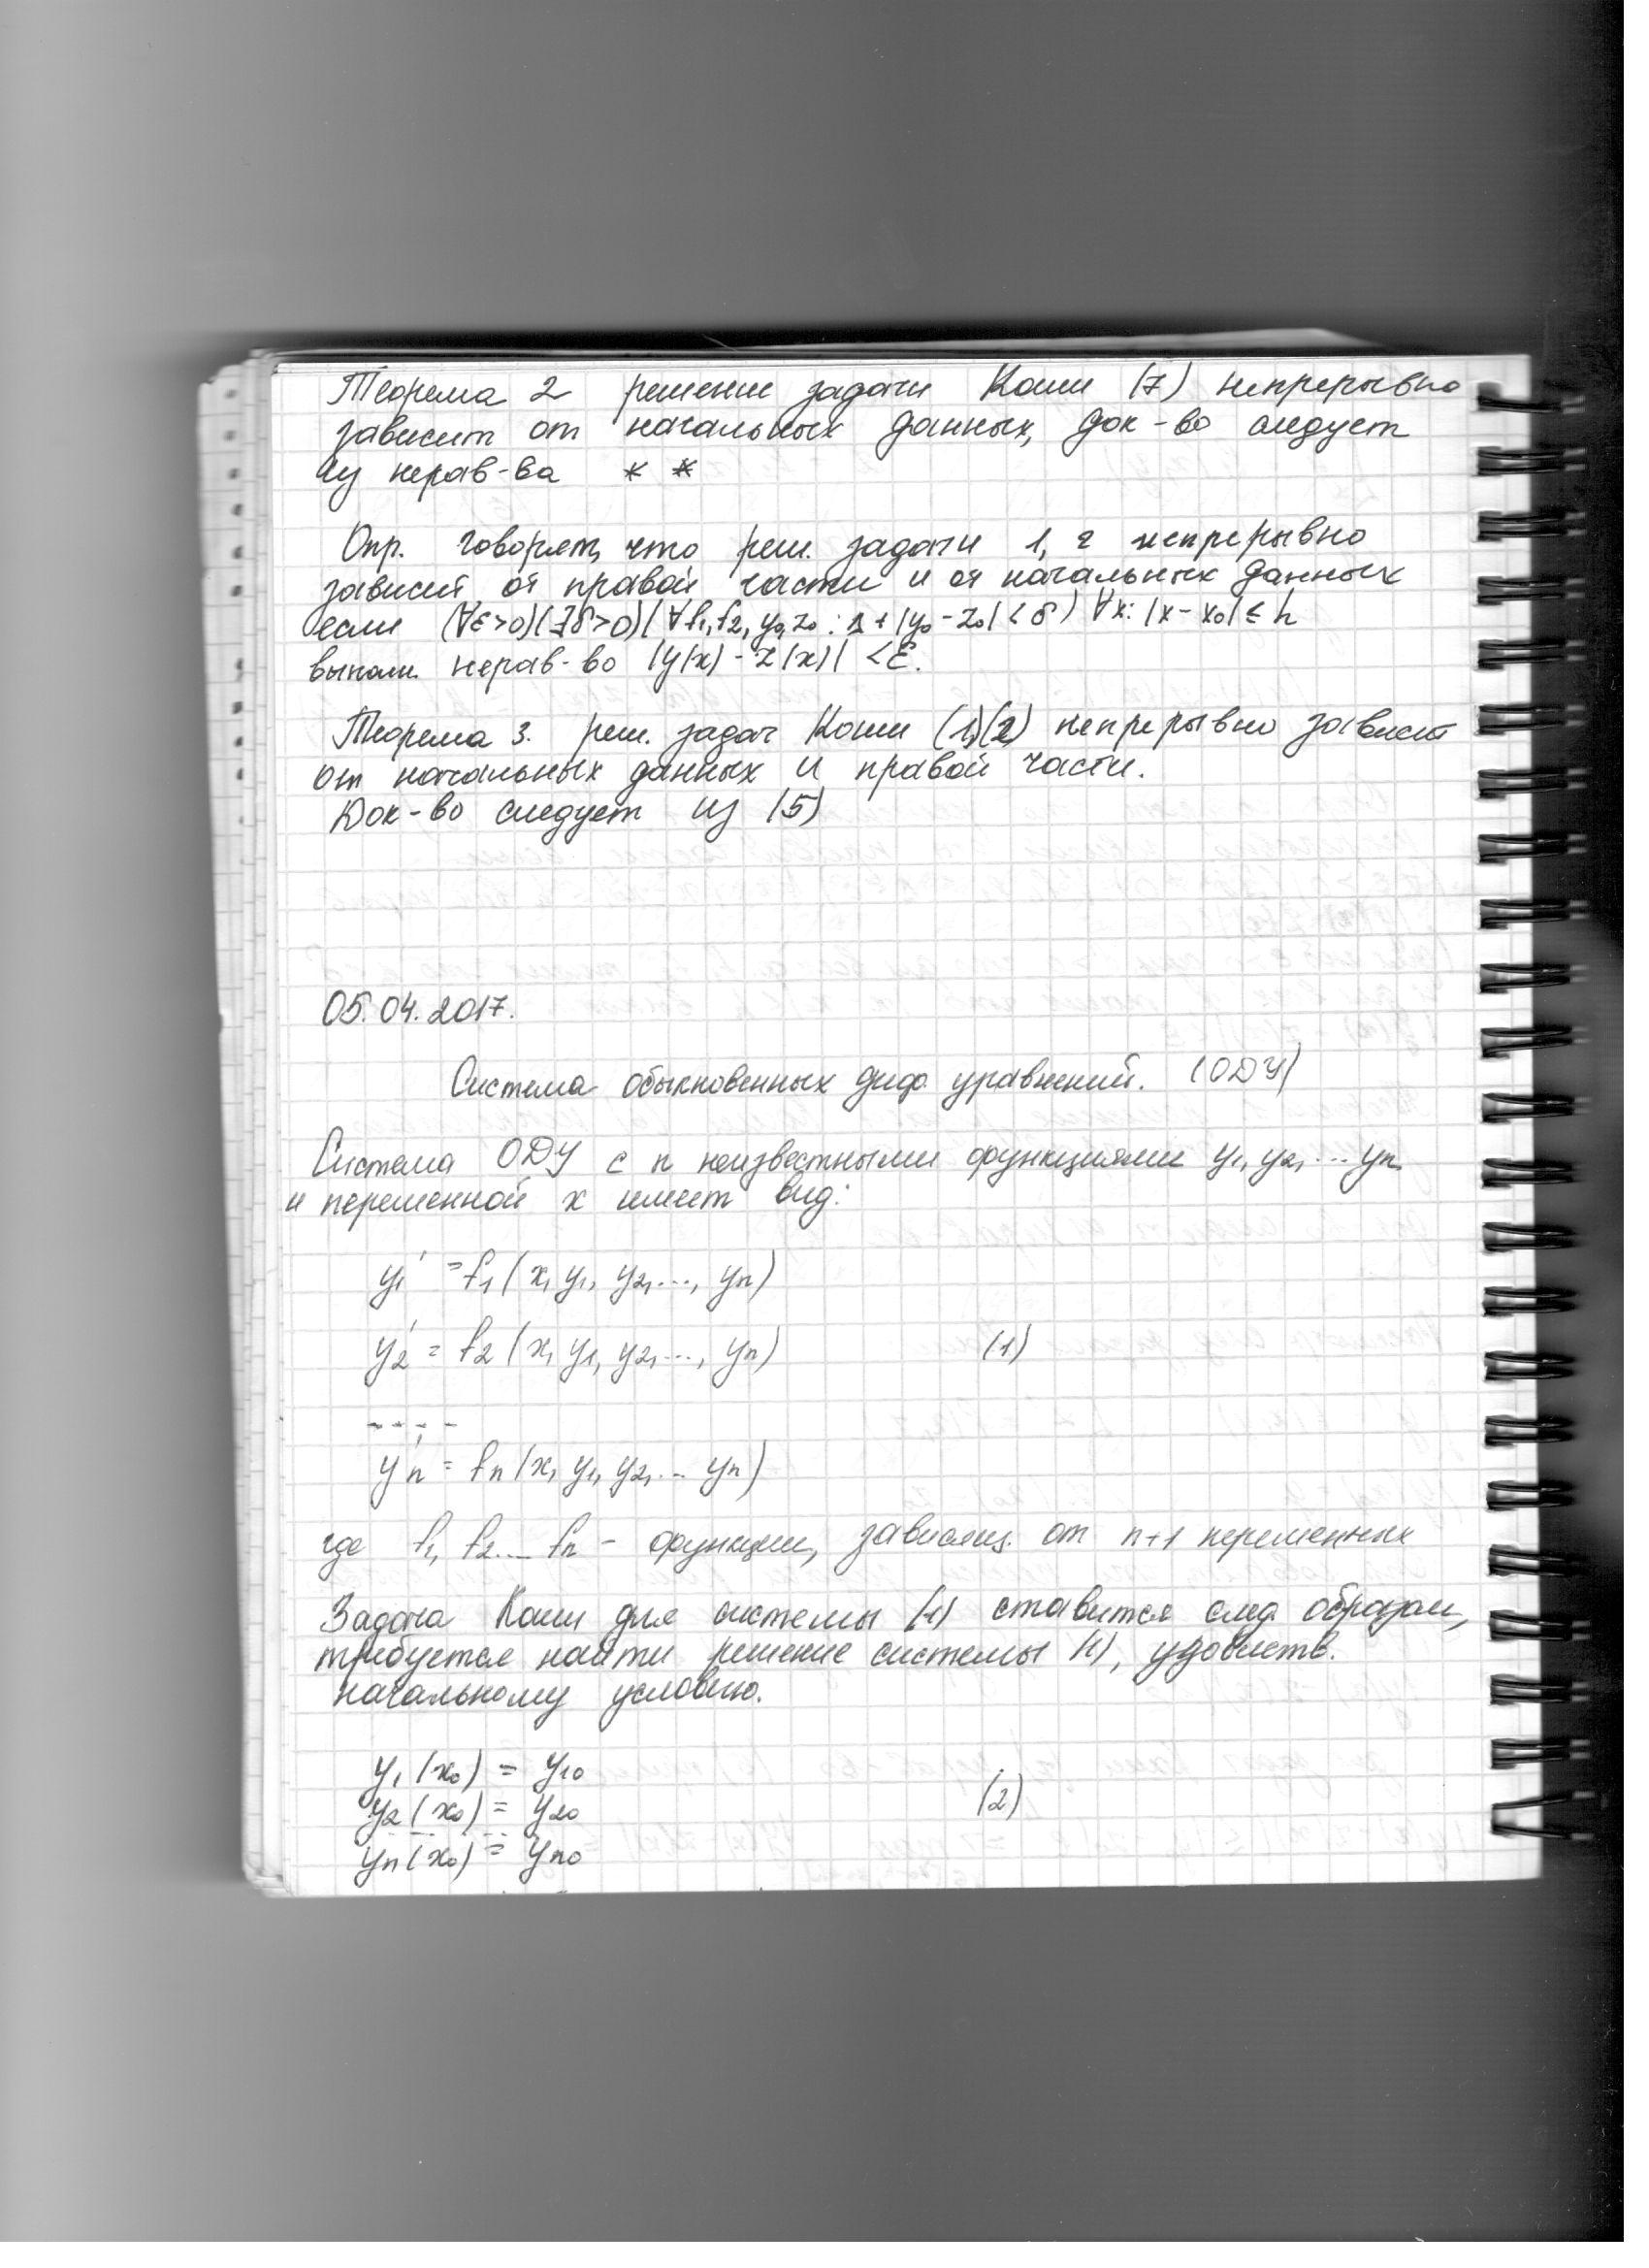 Теорема 2 решение задачи Коши (7) непрерывно
зависит от начальных данных, док-во следует
из нерав-ва * *
Опр. говорят, что реш. задачи 1, 2 непрерывно
зависит от правой части и от начальных данных
если (∀ε>0)(∃δ>0)(∀f₁,f₂,y₀,z₀ : 1 + |y₀ - z₀| < δ) ∀x: |x - x₀| ≤ h
выполн. нерав-во |y(x) - z(x)| < ε.
Теорема 3. реш. задач Коши (1)(2) непрерывно зависит
от начальных данных и правой части.
Док-во следует из (5)
05.04.2017.
Система обыкновенных диф. уравнений. (ОДУ)
Система ОДУ с n неизвестными функциями y₁, y₂, ... yₙ
и переменной x имеет вид:
y₁' = f₁(x, y₁, y₂, ..., yₙ)
y₂' = f₂(x, y₁, y₂, ..., yₙ) (1)
- - - -
yₙ' = fₙ(x, y₁, y₂, ... yₙ)
где f₁, f₂ ... fₙ - функции, зависящ. от n+1 переменных
Задача Коши для системы (1) ставится след. образом,
требуется найти решение системы (1), удовлетв.
начальному условию.
y₁(x₀) = y₁₀
y₂(x₀) = y₂₀ (2)
yₙ(x₀) = yₙ₀